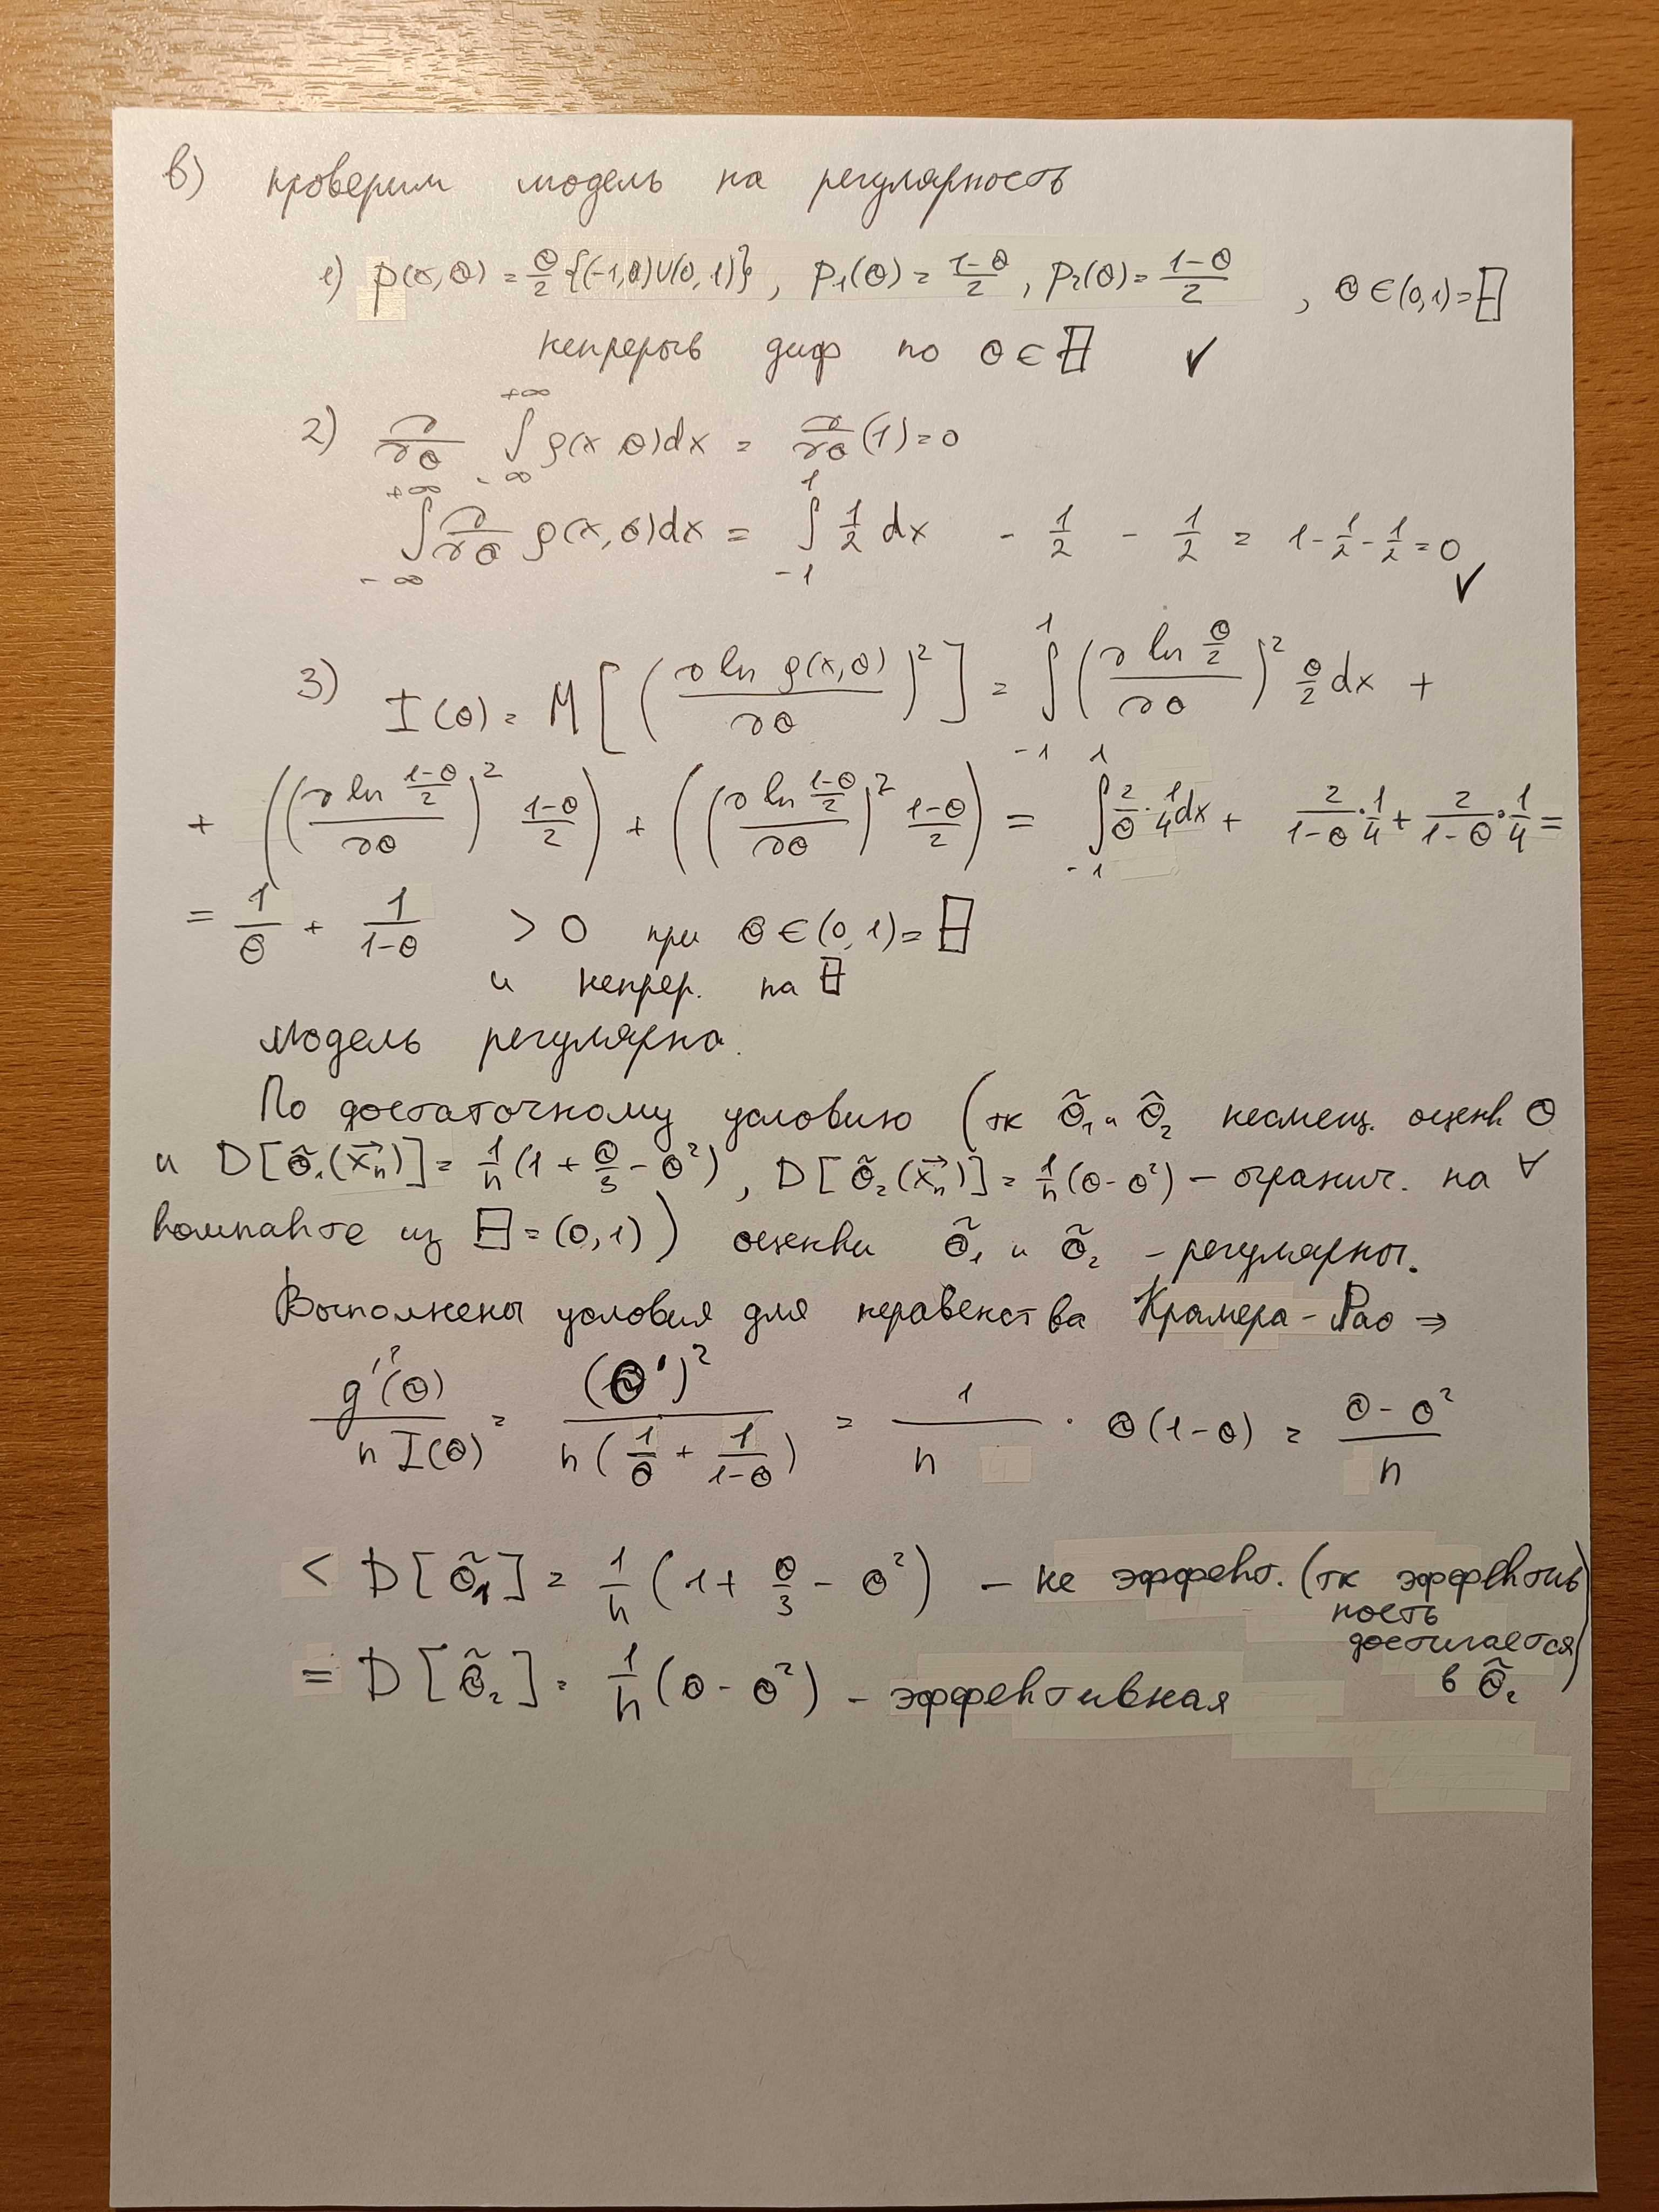 в) проверим модель на регулярность
1) p(x,θ) = θ/2 {(-1,0)∪(0,1)}, p₁(θ) = (1-θ)/2, p₂(θ) = (1-θ)/2, θ∈(0,1)=Θ
непрерыв диф по θ∈Θ ✓
2) ∂/∂θ ∫_{-∞}^{+∞} ρ(x θ)dx = ∂/∂θ (1) = 0
∫_{-∞}^{+∞} ∂/∂θ ρ(x,θ)dx = ∫_{-1}^{1} 1/2 dx - 1/2 - 1/2 = 1 - 1/2 - 1/2 = 0 ✓
3) I(θ) = M[(∂ ln ρ(x,θ)/∂θ)²] = ∫_{-1}^{1} (∂ ln θ/2 / ∂θ)² θ/2 dx +
+ ((∂ ln (1-θ)/2 / ∂θ)² (1-θ)/2) + ((∂ ln (1-θ)/2 / ∂θ)² (1-θ)/2) = ∫_{-1}^{1} 2/θ · 1/4 dx + 2/(1-θ) · 1/4 + 2/(1-θ) · 1/4 =
= 1/θ + 1/(1-θ) > 0 при θ∈(0,1)=Θ
и непрер. на Θ
модель регулярна.
По достаточному условию (тк θ̃₁ и θ̃₂ несмещ. оценк θ
и D[θ̃₁(x⃗ₙ)] = 1/n (1 + θ/3 - θ²), D[θ̃₂(x⃗ₙ)] = 1/n (θ - θ²) – огранич. на ∀
компакте из Θ = (0,1)) оценки θ̃₁ и θ̃₂ – регулярны.
Выполнены условия для неравенства Крамера - Рао ⇒
g'²(θ)/(n I(θ)) = (θ')²/(n(1/θ + 1/(1-θ))) = 1/n · θ(1-θ) = (θ - θ²)/n
< D[θ̃₁] = 1/n (1 + θ/3 - θ²) – не эффект. (тк эффектив
ность
достигается
в θ̃₂)
= D[θ̃₂] = 1/n (θ - θ²) – эффективная